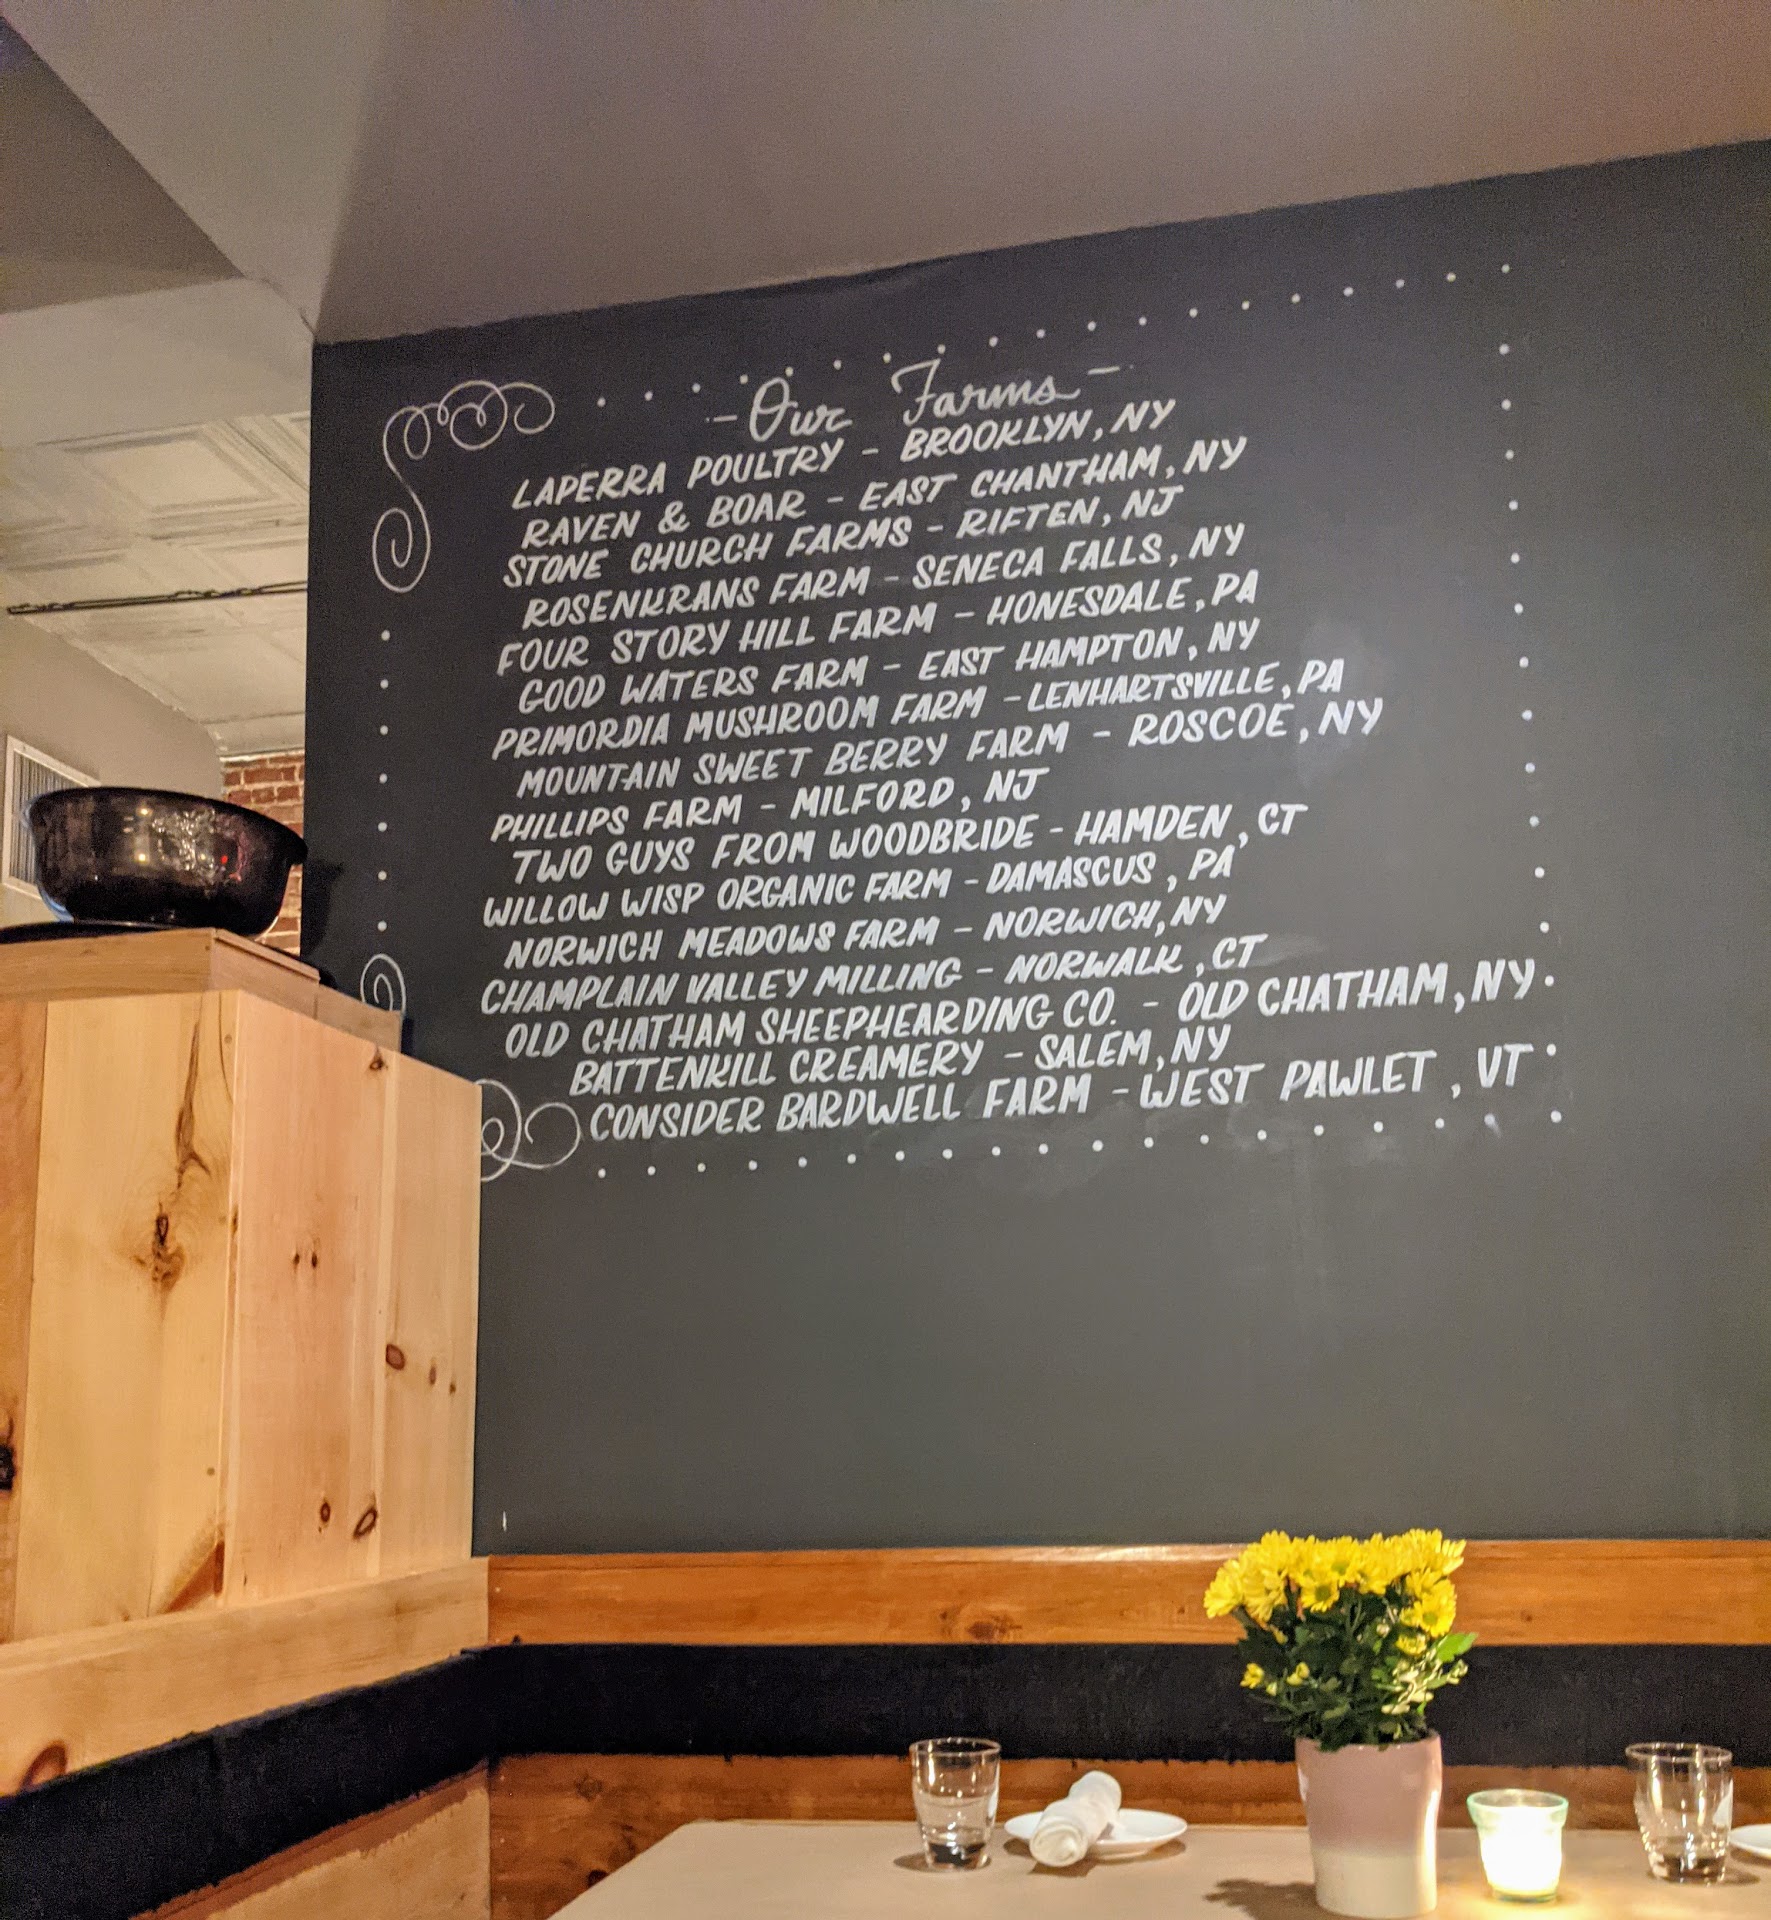 - Our Farms -
LAPERRA POULTRY - BROOKLYN, NY
RAVEN & BOAR - EAST CHANTHAM, NY
STONE CHURCH FARMS - RIFTEN, NJ
ROSENKRANS FARM - SENECA FALLS, NY
FOUR STORY HILL FARM - HONESDALE, PA
GOOD WATERS FARM - EAST HAMPTON, NY
PRIMORDIA MUSHROOM FARM - LENHARTSVILLE, PA
MOUNTAIN SWEET BERRY FARM - ROSCOE, NY
PHILLIPS FARM - MILFORD, NJ
TWO GUYS FROM WOODBRIDE - HAMDEN, CT
WILLOW WISP ORGANIC FARM - DAMASCUS, PA
NORWICH MEADOWS FARM - NORWICH, NY
CHAMPLAIN VALLEY MILLING - NORWALK, CT
OLD CHATHAM SHEEPHEARDING CO. - OLD CHATHAM, NY
BATTENKILL CREAMERY - SALEM, NY
CONSIDER BARDWELL FARM - WEST PAWLET, VT